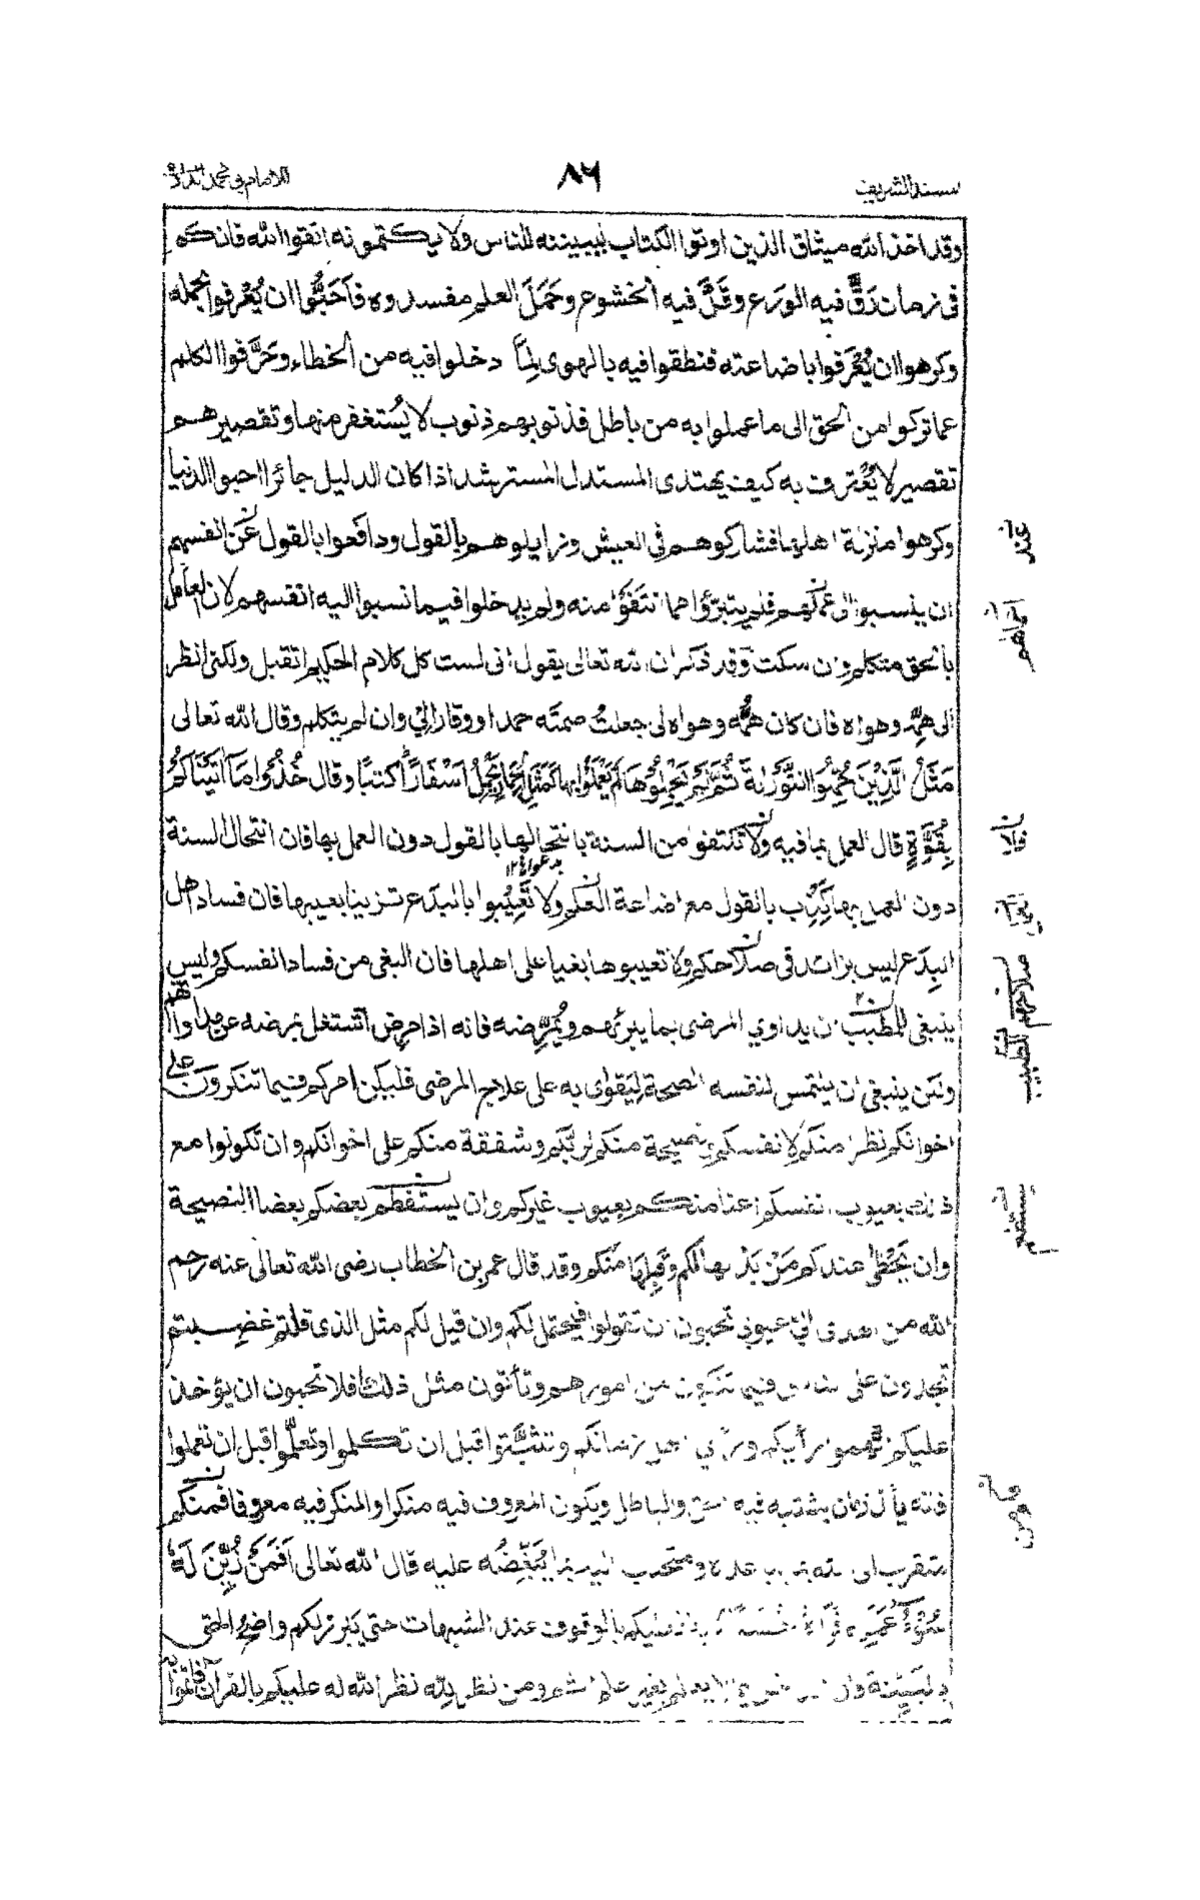 مسند الشريف
٨٦
للامام ابى محمد الدارمى
وقد اخذ الله ميثاق الذين اوتوا الكتاب ليبيننه للناس ولا يكتمونه اتقوا الله فانكم
فى زمان رَقَّ فيه الورع وقَلَّ فيه الخشوع وحَمَلَ العلم مفسدوه فاَحَبُّوا ان يُعْرفوا بحمله
وكرهوا ان يُعْرَفوا باضاعته فنطقوا فيه بالهوى لِمَا دخلوا فيه من الخطاء وحَرَّفوا الكلم
عما تركوا من الحق الى ما عملوا به من باطل فذنوبهم ذنوب لا يُسْتغفر منها وتقصيرهم
تقصير لا يُعْترف به كيف يهتدى المستدل المسترشد اذا كان الدليل جائرا احبوا الدنيا
وكرهوا منزلة اهلها فشاركوهم فى العيش وزايلوهم بالقول ودافعوا بالقول عَن انفسهم
ان ينسبوا الى عملهم فلم يتبرؤا مما انتفَوْا منه ولم يدخلوا فيما نسبوا اليه انفسهم لان العامل
بالحق متكلم وان سكت وقد ذكر ان الله تعالى يقول انى لست كل كلام الحكيم اتقبل ولكنى انظر
الى همِّه وهواه فان كان همُّه وهواه لى جعلتُ صمته حمدا ووقارا لى وان لم يتكلم وقال الله تعالى
مَثَلُ الَّذِيْنَ حُمِّلُوا التَّوْرٰىةَ ثُمَّ لَمْ يَحْمِلُوْهَا لم يَعْمَلُوا بها كَمَثَلِ الْحِمَارِ يَحْمِلُ اَسْفَارًا كتبًا وقال خُذُوْا مَا اٰتَيْنٰاكُمْ
بِقُوَّةٍ قال العمل بما فيه ولا تكتفوا من السنة بانتحالها بالقول دون العمل بها فان انتحال السنة
دون العمل بها كَذِب بالقول مع اضاعة العلم ولا تَعِيْبوا بالبدع تزينا بعيبها فان فساد اهل
البِدَع ليس بزائد فى صلاحكم ولا تعيبوها بغيا على اهلها فان البغى من فساد انفسكم وليس
ينبغى للمطبب ان يداوي المرضى بما يبرئهم ويُمَرِّضه فانه اذا مرض اشتغل بمرضه عن مداواتهم
ولكن ينبغى ان يلتمس لنفسه الصحة ليَقْوى به على علاج المرضى فليكن امركم فيما تنكرون على
اخوانكم نظرا منكم لانفسكم ونصيحة منكم لربكم وشفقة منكم على اخوانكم وان تكونوا مع
ذلك بعيوب انفسكم اعنا منكم بعيوب غيركم وان يستفطم بعضكم بعضا النصيحة
وان يَحْظٰى عندكم مَنْ بَذَلها لكم وقَبِلَها منكم وقد قال عمر بن الخطاب رضى الله تعالى عنه رحم
الله من اهدى الىّ عيوبى تحبون ان تقولوا فيحتمل لكم وان قيل لكم مثل الذى قلتم غضبتم
تجدون على الناس فيما تنكرون من امورهم وتأتون مثل ذلك افلا تحبون ان يؤخذ
عليكم اتهموا رأيكم ورأي اهل زمانكم وتثبتوا قبل ان تكلموا وتعلموا قبل ان تعملوا
فانه يأتى زمان يشتبه فيه الحق والباطل ويكون المعروف فيه منكرا والمنكر فيه معروفا فمنكم
متقرب الى الله بما يباعده ومتحبب اليه بما يُبَغِّضُه عليه قال الله تعالى اَفَمَنْ زُيِّنَ لَهٗ
سُوْءُ عَمَلِهٖ فَرَاٰهُ حَسَنًا فعليكم بالوقوف عند الشبهات حتى يَبرز لكم واضحُ الحق
بالبَيِّنة فان بغير علم اٰثم ومن نظر لله نظر الله له عليكم بالقرآن فاتموا
عند
اعمالهم
العمل
صلاحهم
للطبيب
يستطعم